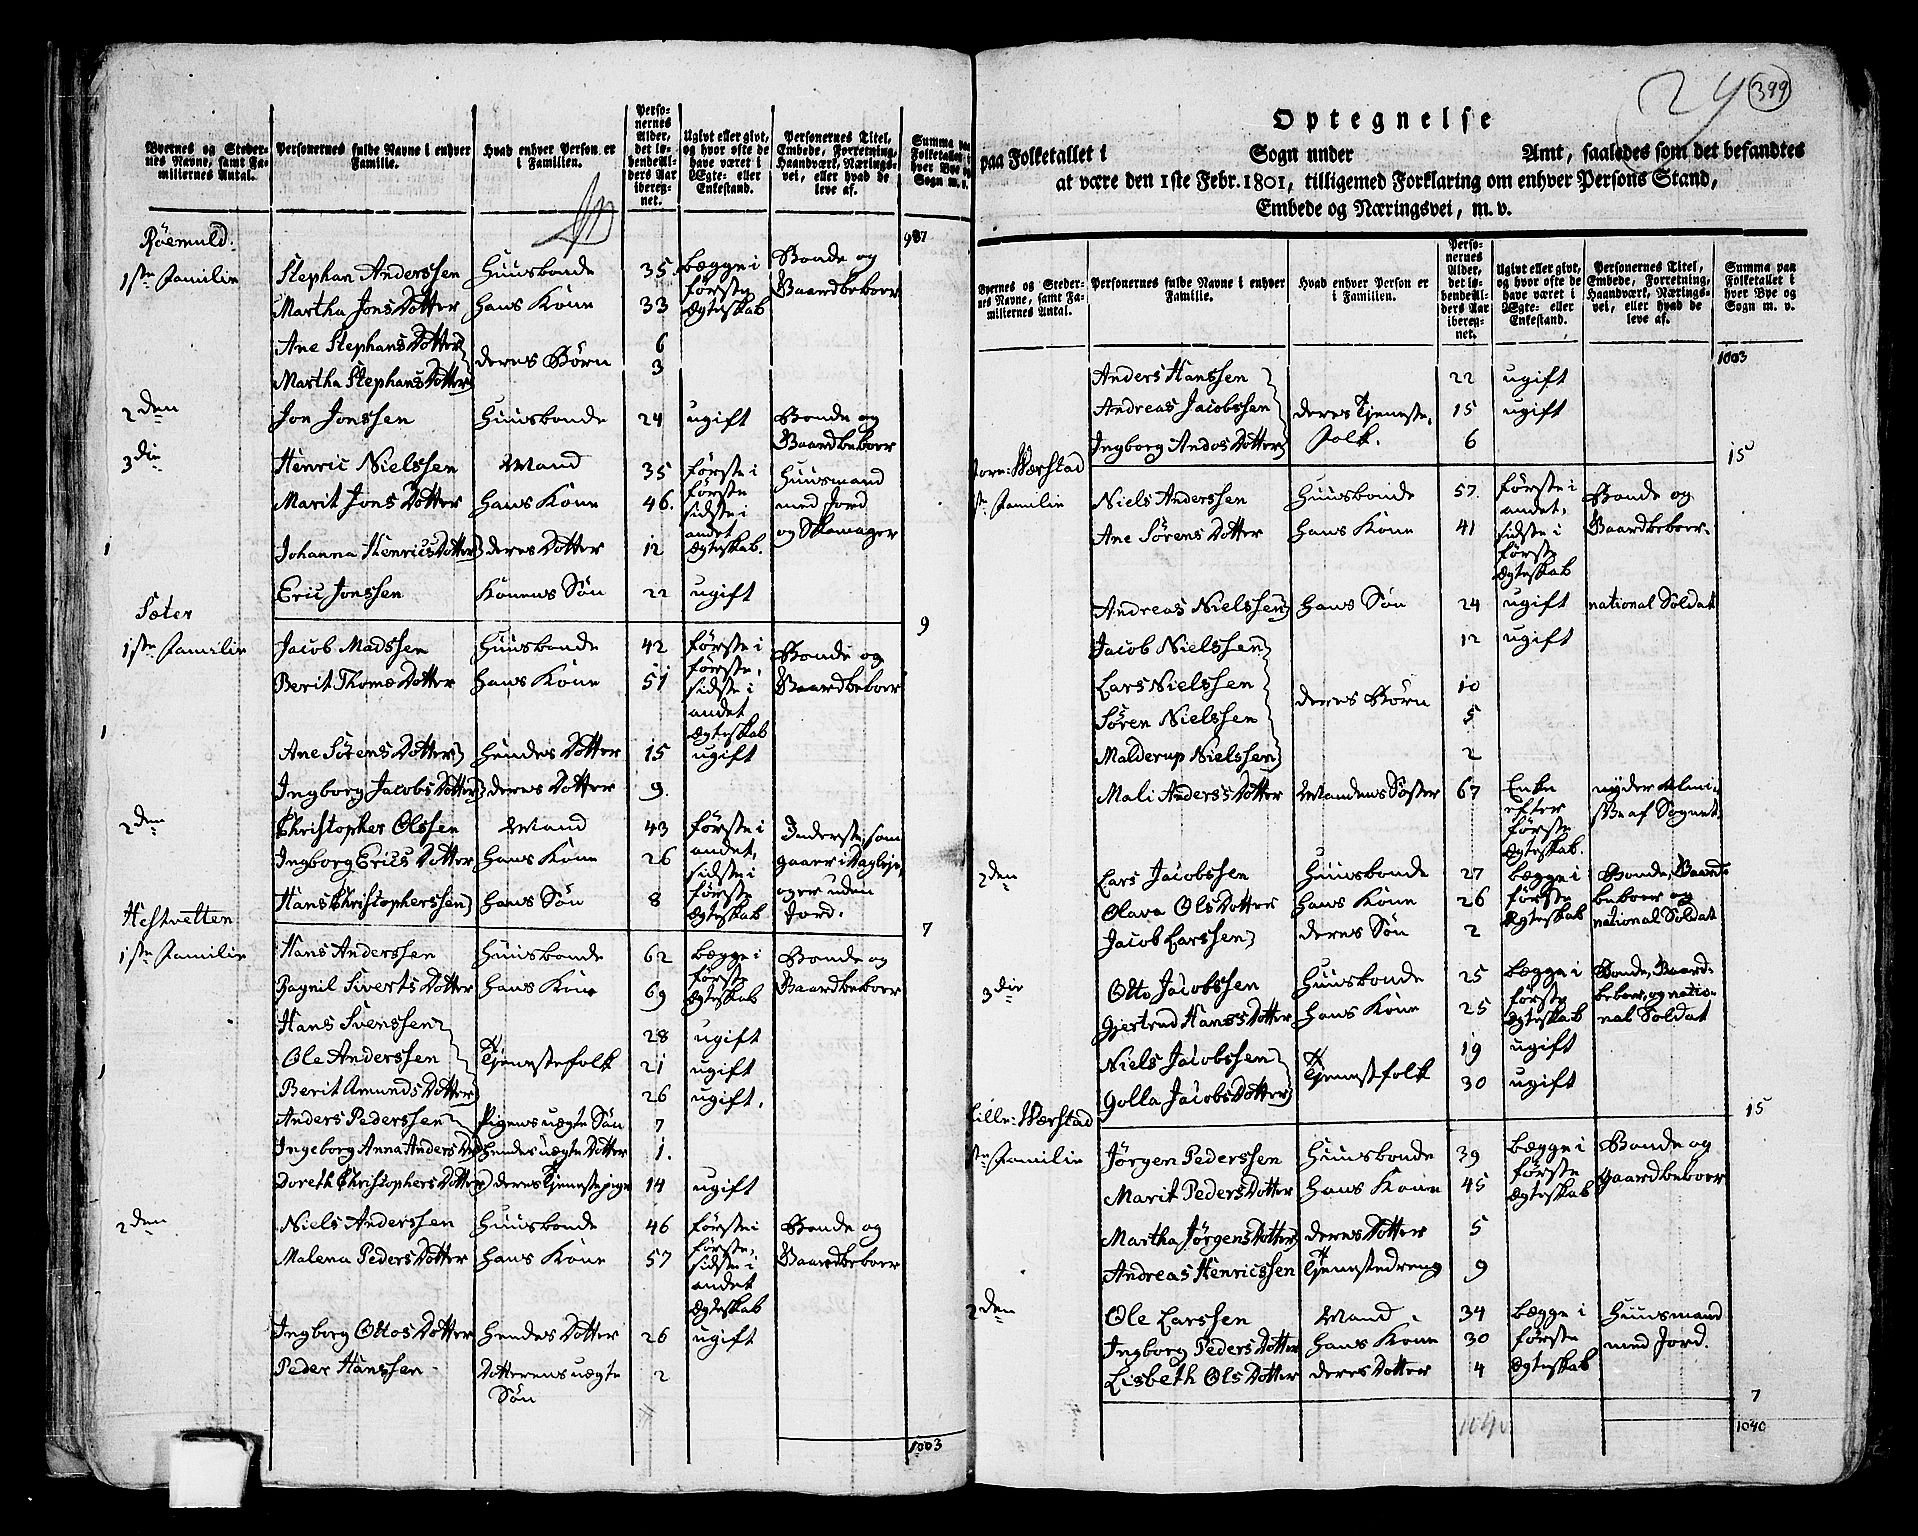 Byernes og Stedernes Navne, samt Familiernes Antal.
Personernes fulde Navne i enhver Familie.
Hvad enhver Person er i Familien.
Personernes Alder, det løbende Alders Aar iberegnet.
Ugivt eller givt, og hvor ofte de have været i Ægte- eller Enkestand.
Personernes Titel, Embede, Forretning, Haandværk, Næringsvei, eller hvad de leve af.
Summa paa Folketallet i hver Bye og Sogn m. v.
987
Røemuld.
1ste Familie Stephan Anderssen Huusbonde 35 begge i første Ægteskab Bonde og Gaardbeboer
Martha JonsDotter hans Kone 33
Ane StephansDotter deres Børn 6
Martha StephansDotter 3
2den Jon Jonssen Huusbonde 24 ugift Bonde og Gaardbeboer
3die Henric Nielssen Mand 35 første i første sidste i andet Ægteskab. Huusmand med Jord og Skomager
Marit JonsDotter hans Kone 46.
Johanna HenricsDotter deres Dotter 12
Eric Jonssen Konens Søn 22 ugift
9
Sæter
1ste Familie Jacob Madssen Huusbonde 42 første i første, sidste i andet Ægteskab Bonde og Gaardbeboer
Berit ThomæDotter hans Kone 51
Ane SørensDotter hendes Dotter 15 ugift
Ingborg JacobsDotter deres Dotter 9.
2den Christopher Olssen Mand 43 første i andet, sidste i første Ægteskab Inderste, som gaaer i Dagleje, og er uden Jord.
Ingborg EricsDotter hans Kone 26
Hans Christopherssen hans Søn 8
7
Hestvetten
1ste Familie Hans Anderssen Huusbonde 62 begge i første Ægteskab Bonde og Gaardbeboer
Ragnil SivertsDotter hans Kone 69
Hans Svenssen 28 ugift
Ole Anderssen Tjenestefolk 21 ugift
Berit AmundsDotter 26 ugift.
Anders Pederssen Pigens uægte Søn 7
Ingeborg Anna Anders D hendes uægte Dotter 1.
Doreth ChristophersDotter deres Tjenestepige 14 ugift
2den Niels Anderssen Huusbonde 46 første i første, sidste i andet Ægteskab Bonde og Gaardbeboer
Malena PedersDotter hans Kone 57
Ingborg OttosDotter hendes Dotter 26 ugift
Peder Hanssen Dotterens uægte Søn 2
1003
24 399
Optegnelse
paa Folketallet i Sogn under Amt, saaledes som det befandtes
at være den 1ste Febr. 1801, tilligemed Forklaring om enhver Persons Stand,
Embede og Næringsvei, m. v.
Byernes og Stedernes Navne, samt Familiernes Antal.
Personernes fulde Navne i enhver Familie.
Hvad enhver Person er i Familien.
Personernes Alder, det løbende Alders Aar iberegnet.
Ugivt eller givt, og hvor ofte de have været i Ægte- eller Enkestand.
Personernes Titel, Embede, Forretning, Haandværk, Næringsvei, eller hvad de leve af.
Summa paa Folketallet i hver Bye og Sogn m. v.
1003
Anders Hanssen 22 ugift
Andreas Jacobssen deres Tjenestefolk. 15 ugift
Ingborg AndosDotter 6
15
Store-Wærstad
1ste Familie Niels Anderssen Huusbonde 57. første i andet, sidste i første Ægteskab Bonde og Gaardbeboer.
Ane SørensDotter hans Kone 41
Andreas Nielssen hans Søn 24 ugift national Soldat
Jacob Nielssen 12 ugift
Lars Nielssen deres Børn 10
Søren Nielssen 5
Malderup Nielssen 2
Mali AndersDotter Mandens Søster 67 Enke efter første Ægteskab. nyder Almisse af Sognet.
2den Lars Jacobssen Huusbonde 27 begge i første Ægteskab Bonde, Gaardbeboer og national Soldat
Olava OlsDotter hans Kone 26
Jacob Larssen deres Søn 2
3die Otto Jacobssen Huusbonde 25 begge i første Ægteskab Bonde, Gaardbeboer, og national Soldat
Gjertrud HansDotter hans Kone 25
Niels Jacobssen Tjenestfolk 19 ugift
Golla JacobsDotter 30 ugift
15
Lille-Wærstad
1ste Familie Jörgen Pederssen Huusbonde 39 begge i første Ægteskab Bonde og Gaardbeboer
Marit PedersDotter hans Kone 45
Martha JörgensDotter deres Dotter 5
Andreas Henricssen Tjenestedreng 9
2den Ole Larssen Mand 34 begge i første Ægteskab Huusmand med Jord.
Ingborg PedersDotter hans Kone 30
Lisbeth OlsDotter deres Dotter 4
7
1040